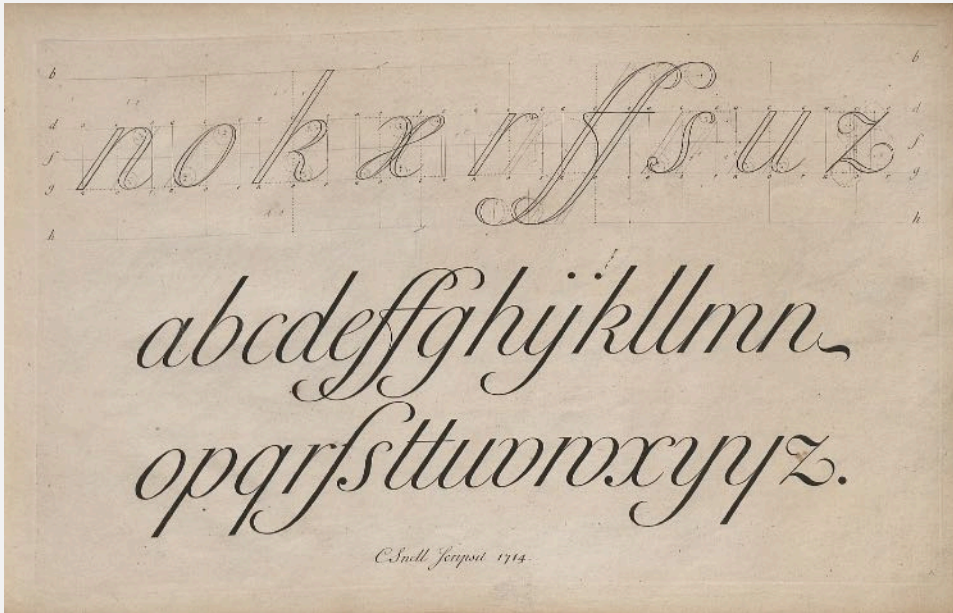 b b
n o k x r ff s u z
d d
f f
g g
h h
abcdeffghijkllmn
opqrſsttuvwxyyyz.
C Snell ſcripsit 1714.